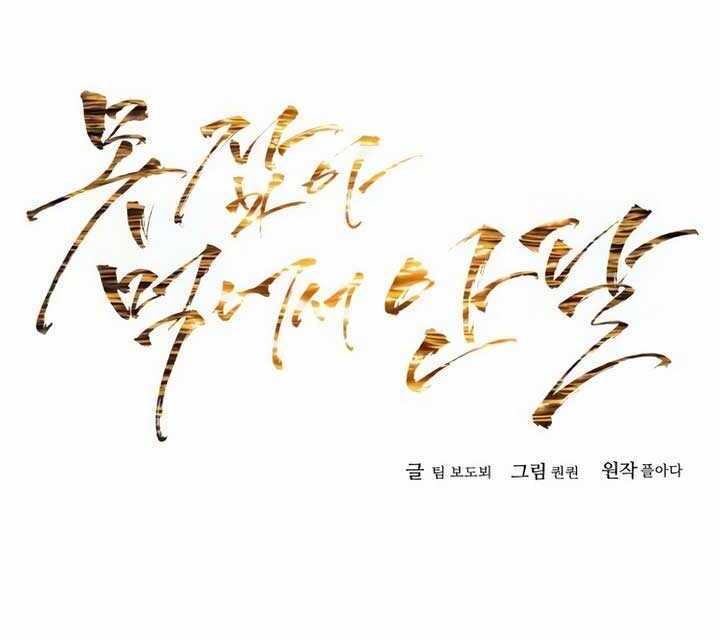 못 잡아
먹어서 안달
글 팀 보도뵈 그림 퀀퀀 원작 플아다